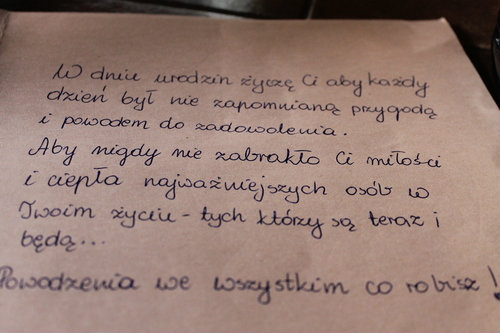 W dniu urodzin życzę Ci aby każdy
dzień był nie zapomnianą przygodą
i powodem do zadowolenia.
Aby nigdy nie zabrakło Ci miłości
i ciepła najważniejszych osób w
Twoim życiu - tych którzy są teraz i
będą...
Powodzenia we wszystkim co robisz!